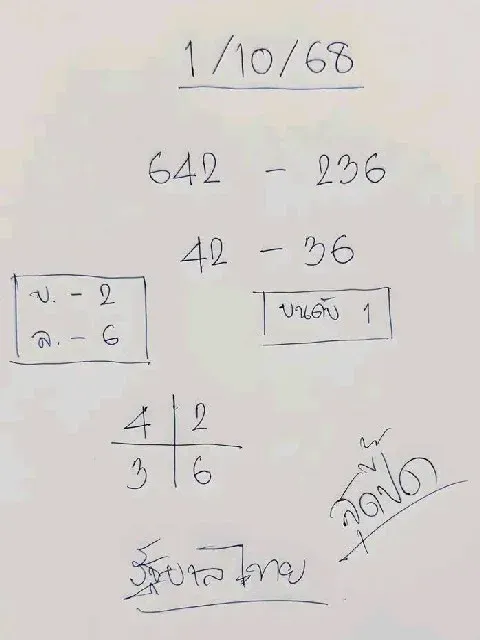 1/10/68
642 - 236
42 - 36
บ. - 2
ล. - 6
บนดับ 1
4 2
3 6
ปี๊
สุดปี๊ด
รัฐบาลไทย